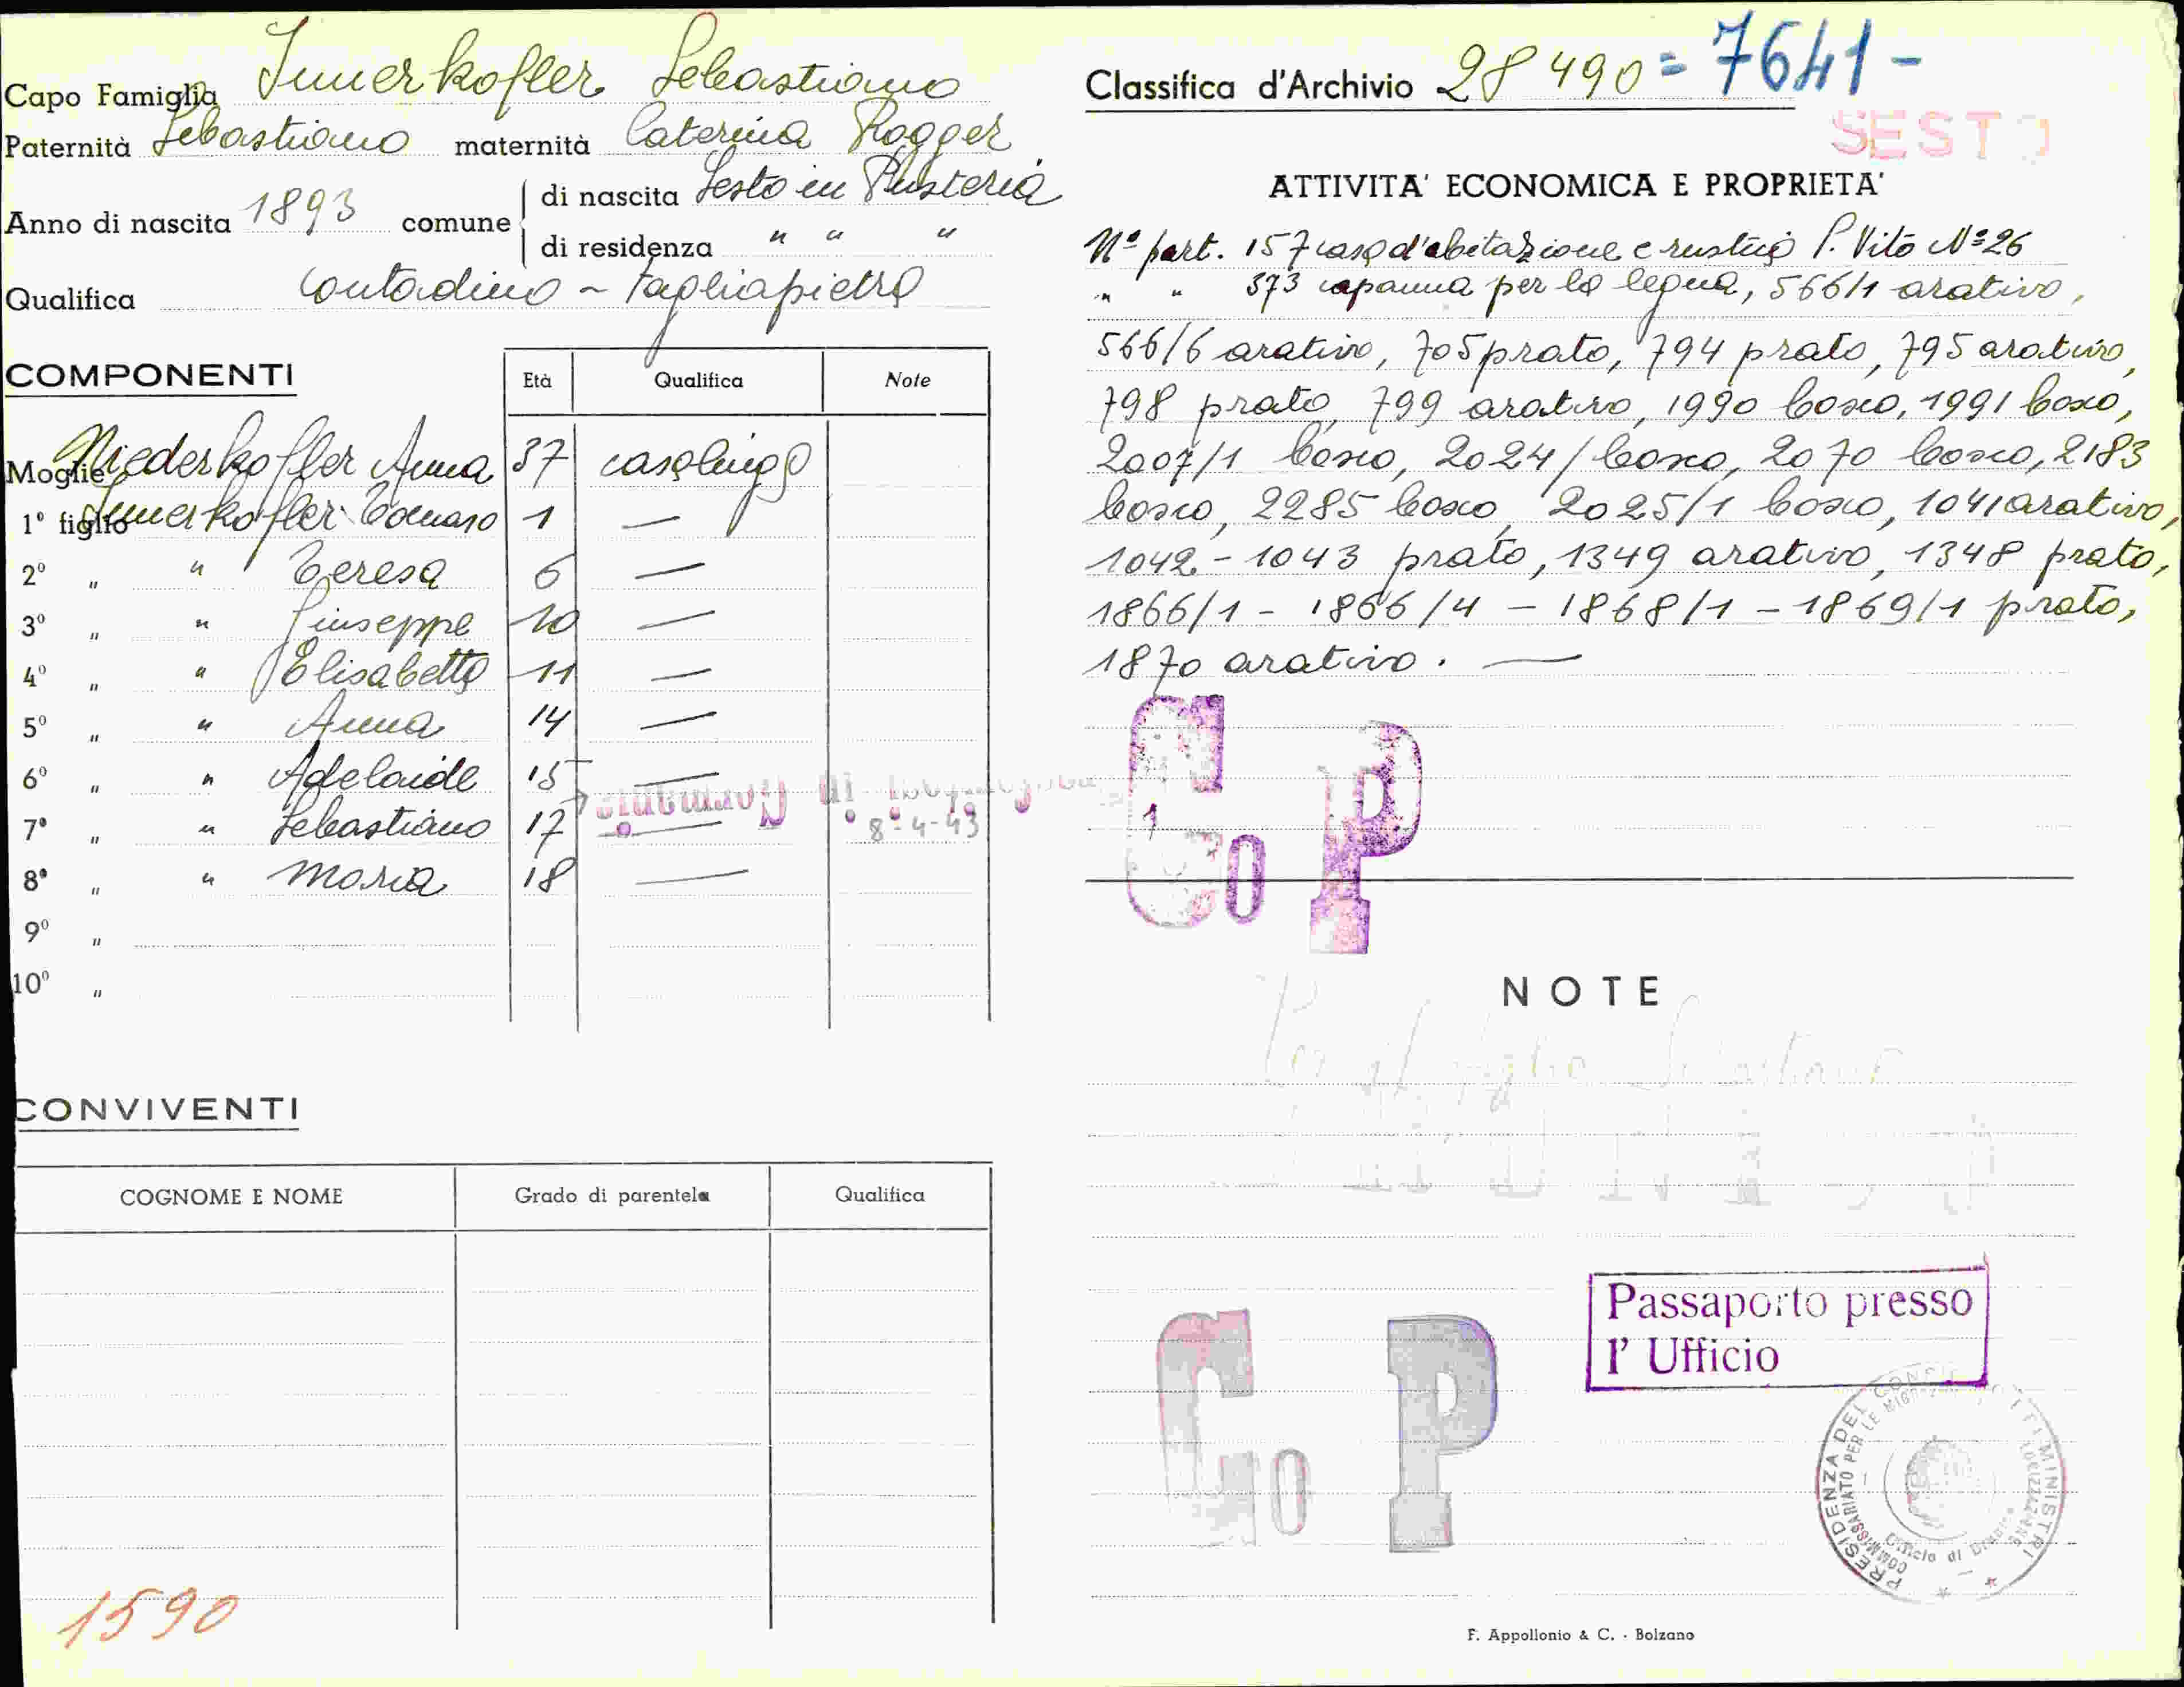 Capo Famiglia Innerkofler Sebastiano
Paternità Sebastiano maternità Caterina Rogger
Anno di nascita 1893 comune di nascita Sesto in Pusteria
di residenza " " "
Qualifica contadino - tagliapietra
COMPONENTI Età Qualifica Note
Moglie Niederkofler Anna 37 casalinga
1° figlio Innerkofler Tomaso 1 —
2° " " Teresa 6 —
3° " " Giuseppe 10 —
4° " " Elisabetta 11 —
5° " " Anna 14 —
6° " " Adelaide 15 —
7° " " Sebastiano 17 — 8-4-43
8° " " Maria 18 —
9° "
10° "
CONVIVENTI
COGNOME E NOME Grado di parentela Qualifica
1590
Classifica d'Archivio 28490 = 7641 -
SESTO
ATTIVITA' ECONOMICA E PROPRIETA'
N° part. 157 casa d'abitazione e rustico S. Vito N° 26
" " 373 capanna per la legna, 566/1 arativo,
566/6 arativo, 705 prato, 794 prato, 795 arativo,
798 prato, 799 arativo, 1990 bosco, 1991 bosco,
2007/1 bosco, 2024/ bosco, 2070 bosco, 2183
bosco, 2285 bosco, 2025/1 bosco, 1041 arativo,
1042 - 1043 prato, 1349 arativo, 1348 prato,
1866/1 - 1866/4 - 1868/1 - 1869/1 prato,
1870 arativo. —
Co P
1
NOTE
Passaporto presso
l' Ufficio
Co P
PRESIDENZA DEL CONSIGLIO MINISTRI
COMMISSARIATO PER LE MIGRAZIONI
Ufficio di
F. Appollonio & C. - Bolzano